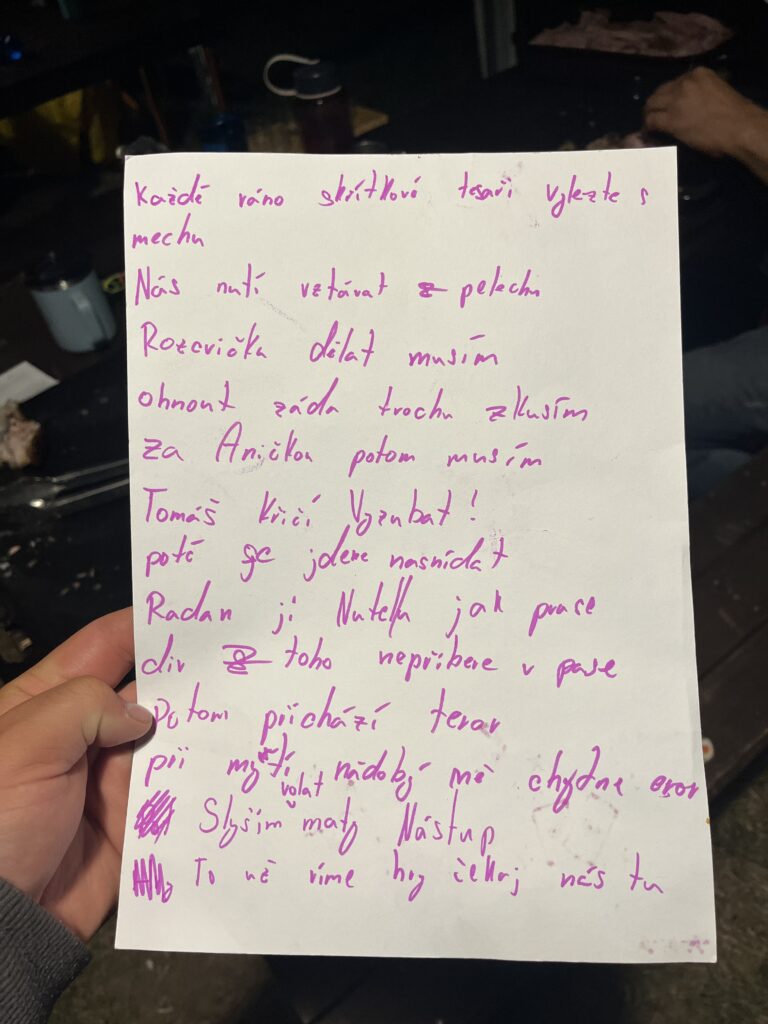 Každé ráno skřítkové tesaři vylezte s
mechu
Nás nutí vztávat z pelechu
Rozcvička dělat musím
ohnout záda trochu zkusím
za Aničkou potom musím
Tomáš křičí Vyzubat!
poté jdeme nasnídat
Radan jí Nutellu jak prase
div z toho nepřibere v pase
Potom přichází teror
při mytí nádobý mě chytne eror
Slyším volat maty Nástup
To už víme hry čekaj nás tu